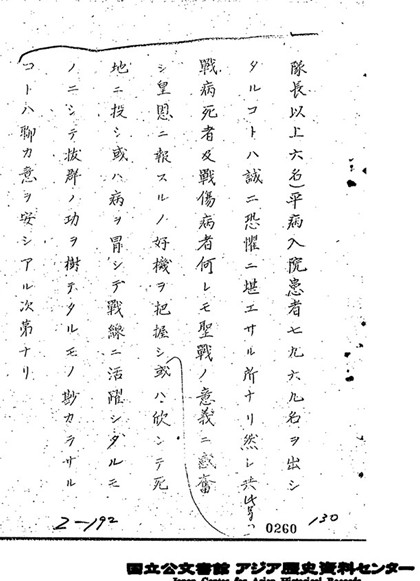 隊長以上六名)平病入院患者七九六九名ヲ出シ
タルコトハ誠ニ恐懼ニ堪エサル所ナリ然レ共此等ハ
戦病死者及戦傷病者何レモ聖戦ノ意義ニ感奮
シ皇恩ニ報スルノ好機ヲ把握シ或ハ欣ンテ死
地ニ投シ或ハ病ヲ冒シテ戦線ニ活躍シタルモ
ノニシテ抜群ノ功ヲ樹テタルモノ尠カラサル
コトハ聊カ意ヲ安シアル次第ナリ
0260
130
2-192
国立公文書館 アジア歴史資料センター
Japan Center for Asian Historical Records